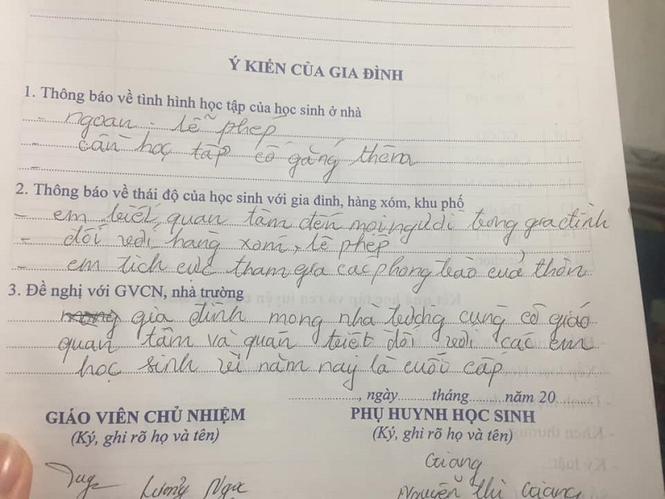 Ý KIẾN CỦA GIA ĐÌNH
1. Thông báo về tình hình học tập của học sinh ở nhà
- ngoan. lễ phép
- cần học tập cố gắng thêm
-
2. Thông báo về thái độ của học sinh với gia đình, hàng xóm, khu phố
- em biết quan tâm đến mọi người trong gia đình
- đối với hàng xóm, lễ phép
- em tích cực tham gia các phong trào của thôn
3. Đề nghị với GVCN, nhà trường
gia đình mong nhà trường cùng cô giáo
quan tâm và quan triệt đối với các em
học sinh vì năm nay là cuối cấp
, ngày tháng năm 20
GIÁO VIÊN CHỦ NHIỆM PHỤ HUYNH HỌC SINH
(Ký, ghi rõ họ và tên) (Ký, ghi rõ họ và tên)
Giang
Lương Ngọc Nguyễn Thị Giang